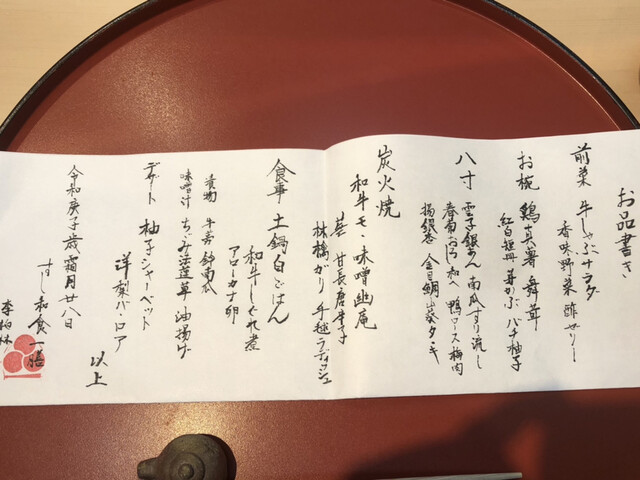 お品書き
前菜 牛しゃぶサラダ
香味野菜 酢ゼリー
お椀 鶏真薯 舞茸
紅白短冊 芽かぶ バチ柚子
八寸 雲子銀あん 南瓜すり流し
春菊おろし和へ 鴨ロース 梅肉
揚銀杏 金目鯛山葵タタキ
炭火焼
和牛モモ 味噌幽庵
甘長唐辛子
林檎がり 手毬ラディッシュ
食事 土鍋白ごはん
和牛しぐれ煮
アローカナ卵
漬物 牛蒡 鈴南瓜
味噌汁 ちぢみ法蓮草 油揚げ
デザート 柚子シャーベット
洋梨ババロア
以上
令和庚子歳霜月廿八日
すし和食 一膳
李柏林